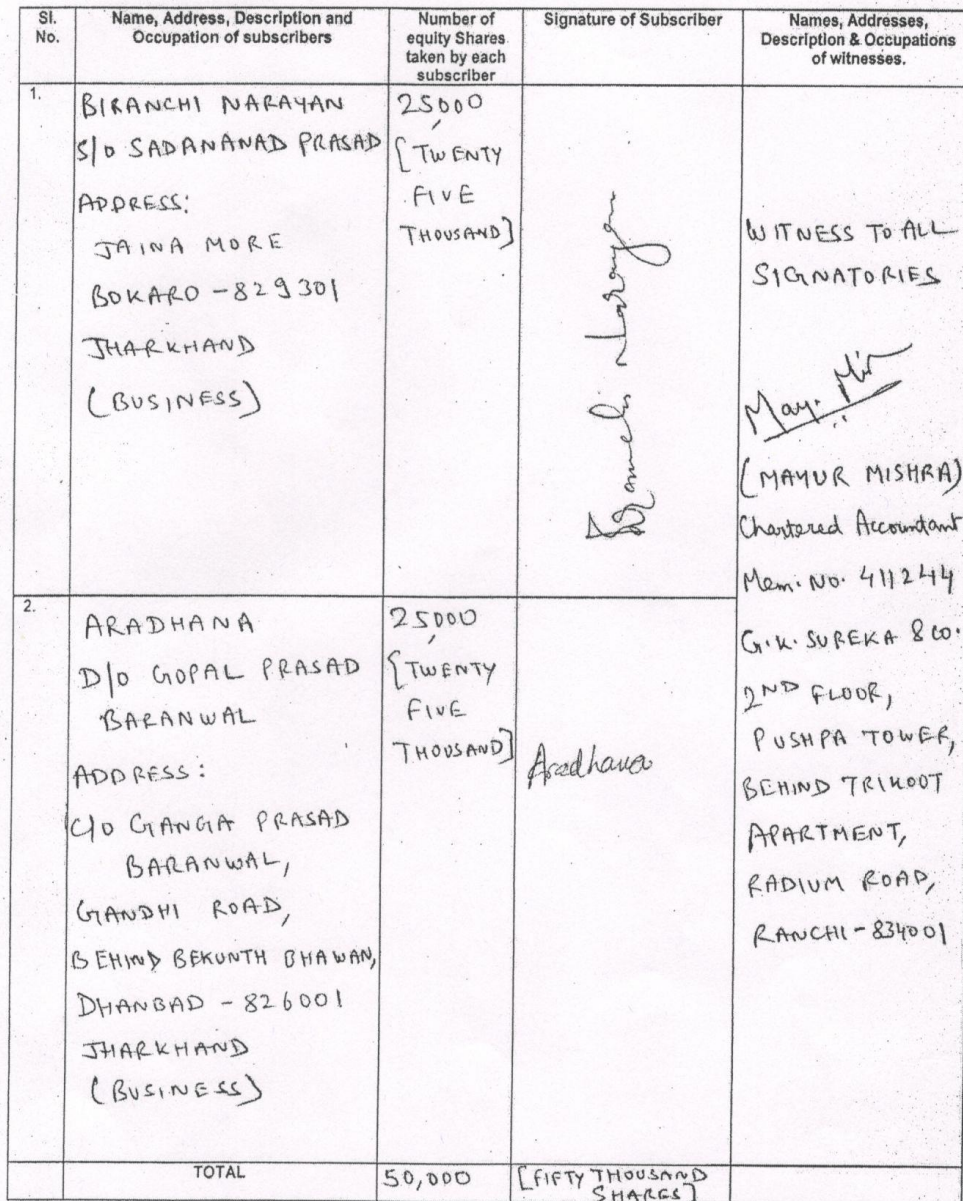 Sl. No.
Name, Address, Description and Occupation of subscribers
Number of equity Shares taken by each subscriber
Signature of Subscriber
Names, Addresses, Description & Occupations of witnesses.
1.
BIRANCHI NARAYAN
S/O SADANANAD PRASAD
ADDRESS:
JAINA MORE
BOKARO - 829301
JHARKHAND
(BUSINESS)
25,000
[TWENTY
FIVE
THOUSAND]
Narayan
WITNESS TO ALL
SIGNATORIES
(MAYUR MISHRA)
Chartered Accountant
Mem. No. 411244
G.K. SUREKA & CO.
2ND FLOOR,
PUSHPA TOWER,
BEHIND TRIKOOT
APARTMENT,
RADIUM ROAD,
RANCHI - 834001
2.
ARADHANA
D/O GOPAL PRASAD
BARANWAL
ADDRESS:
C/O GANGA PRASAD
BARANWAL,
GANDHI ROAD,
BEHIND BEKUNTH BHAWAN,
DHANBAD - 826001
JHARKHAND
(BUSINESS)
25,000
[TWENTY
FIVE
THOUSAND]
Aradhana
TOTAL
50,000
[FIFTY THOUSAND
SHARES]